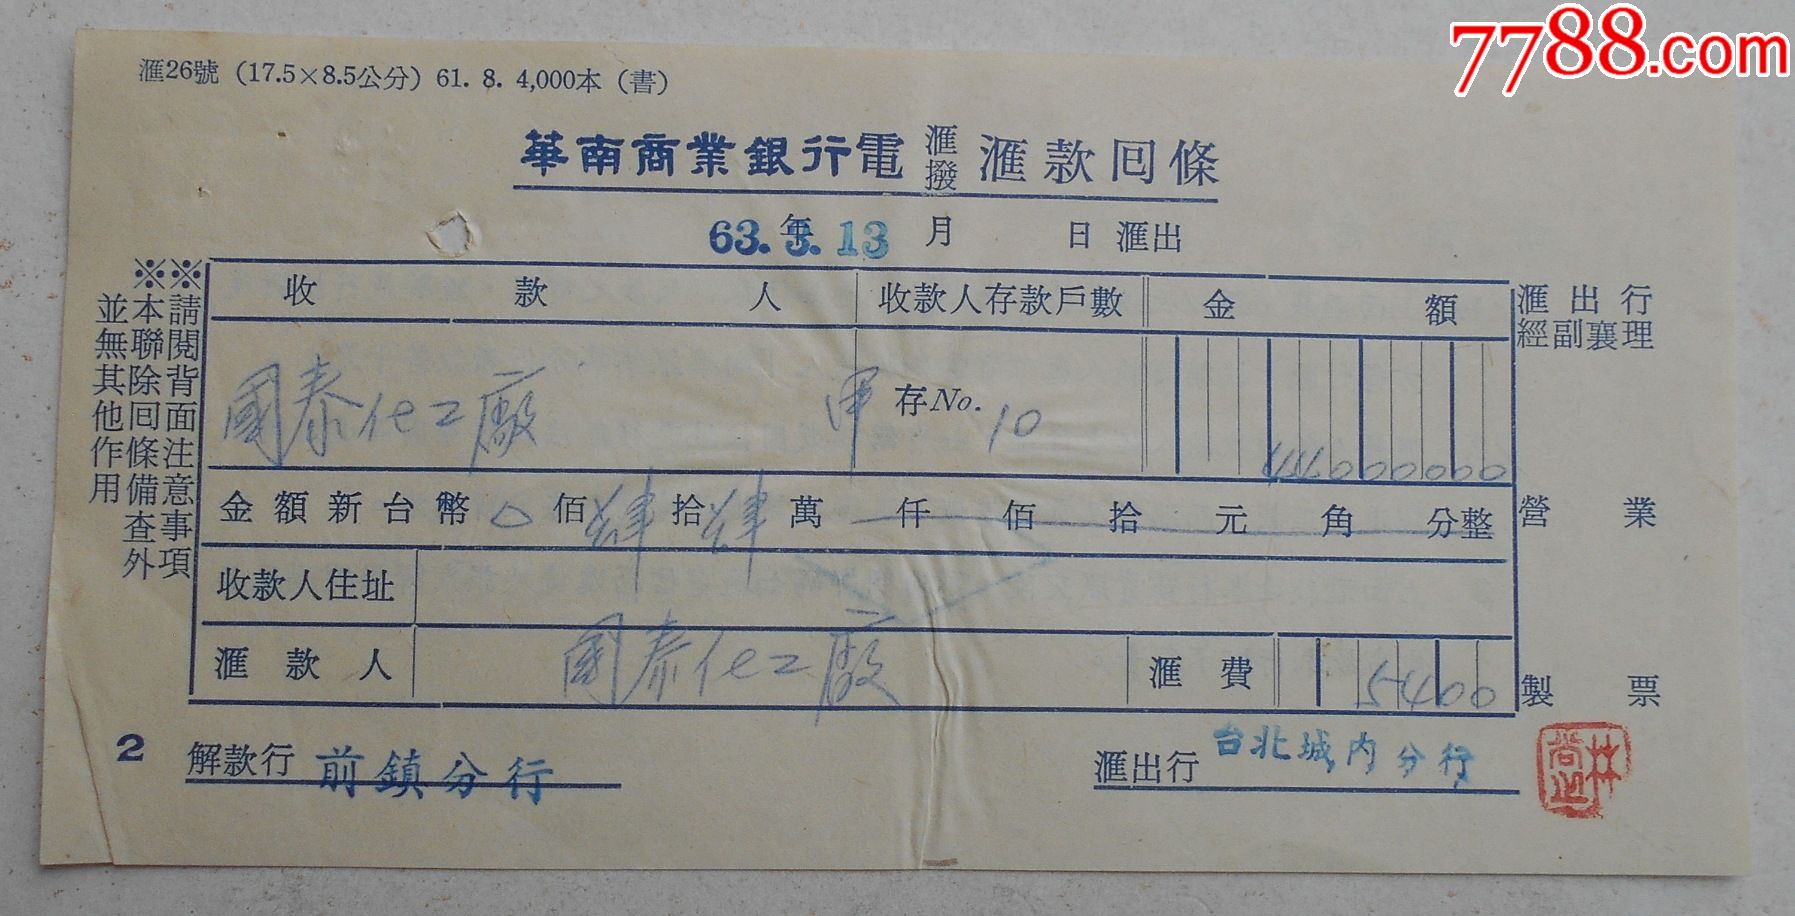 7788.com
滙26號 (17.5×8.5公分) 61. 8. 4,000本 (書)
華南商業銀行電滙撥滙款囘條
63. 3. 13 年 月 日 滙出
※請閱背面注意事項
※本聯除囘條備查外
並無其他作用
收款人 收款人存款戶數 金額
國泰化工廠 甲存No. 10 44000000
金額新台幣0佰肆拾肆萬仟佰拾元角分整
收款人住址
滙款人 國泰化工廠 滙費 5400
滙出行
經副襄理
營業
製票
2 解款行 前鎮分行 滙出行 台北城内分行